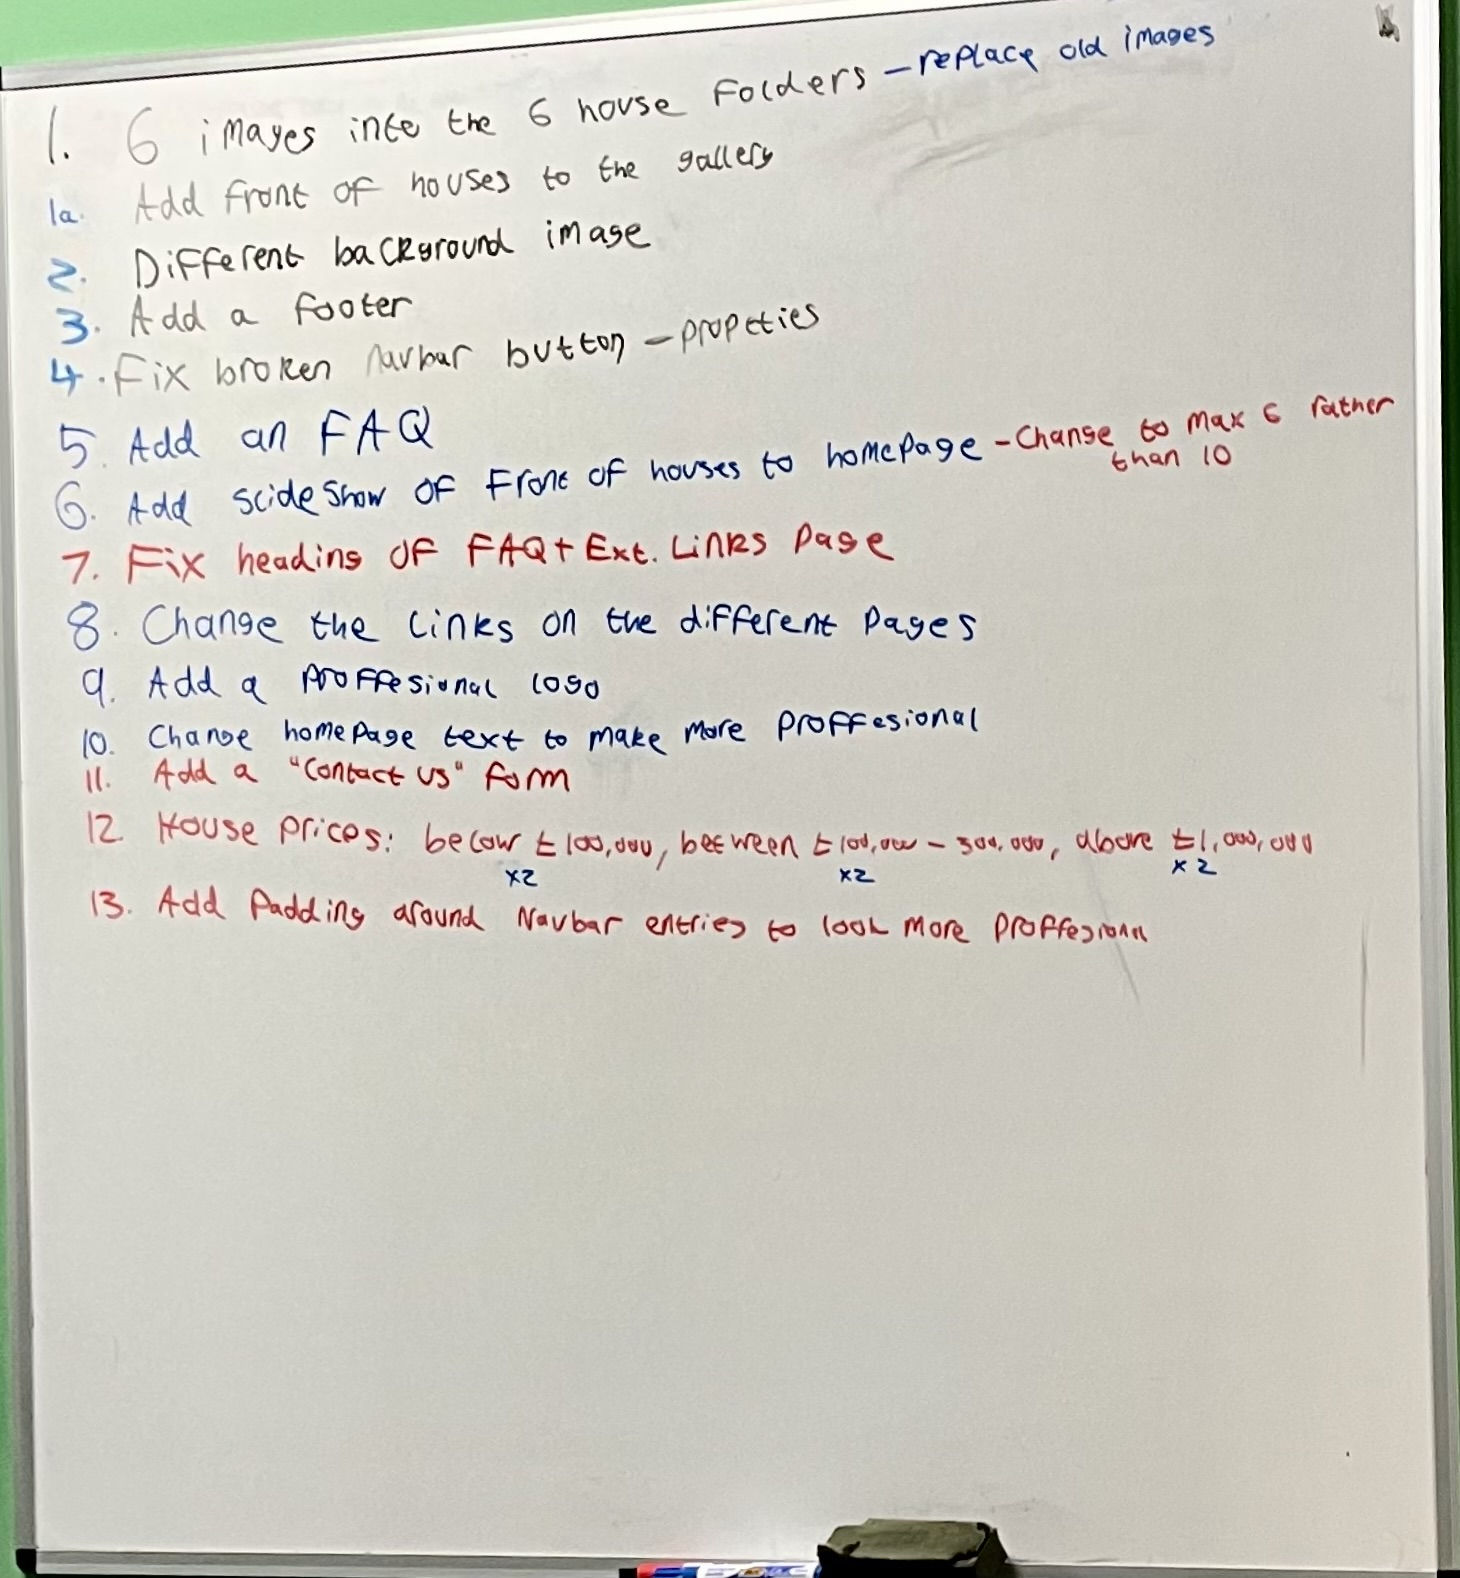 1. 6 images into the 6 house folders - replace old images
1a. Add front of houses to the gallery
2. Different background image
3. Add a footer
4. Fix broken navbar button - propeties
5. Add an FAQ
6. Add slideshow of front of houses to homepage - Change to max 6 rather
than 10
7. Fix heading of FAQ + Ext. Links page
8. Change the links on the different pages
9. Add a proffesional logo
10. Change homepage text to make more proffesional
11. Add a "Contact us" form
12. House prices: below £100,000, between £100,000 - 500,000, above £1,000,000
x2 x2 x2
13. Add Padding around Navbar entries to look more proffesional